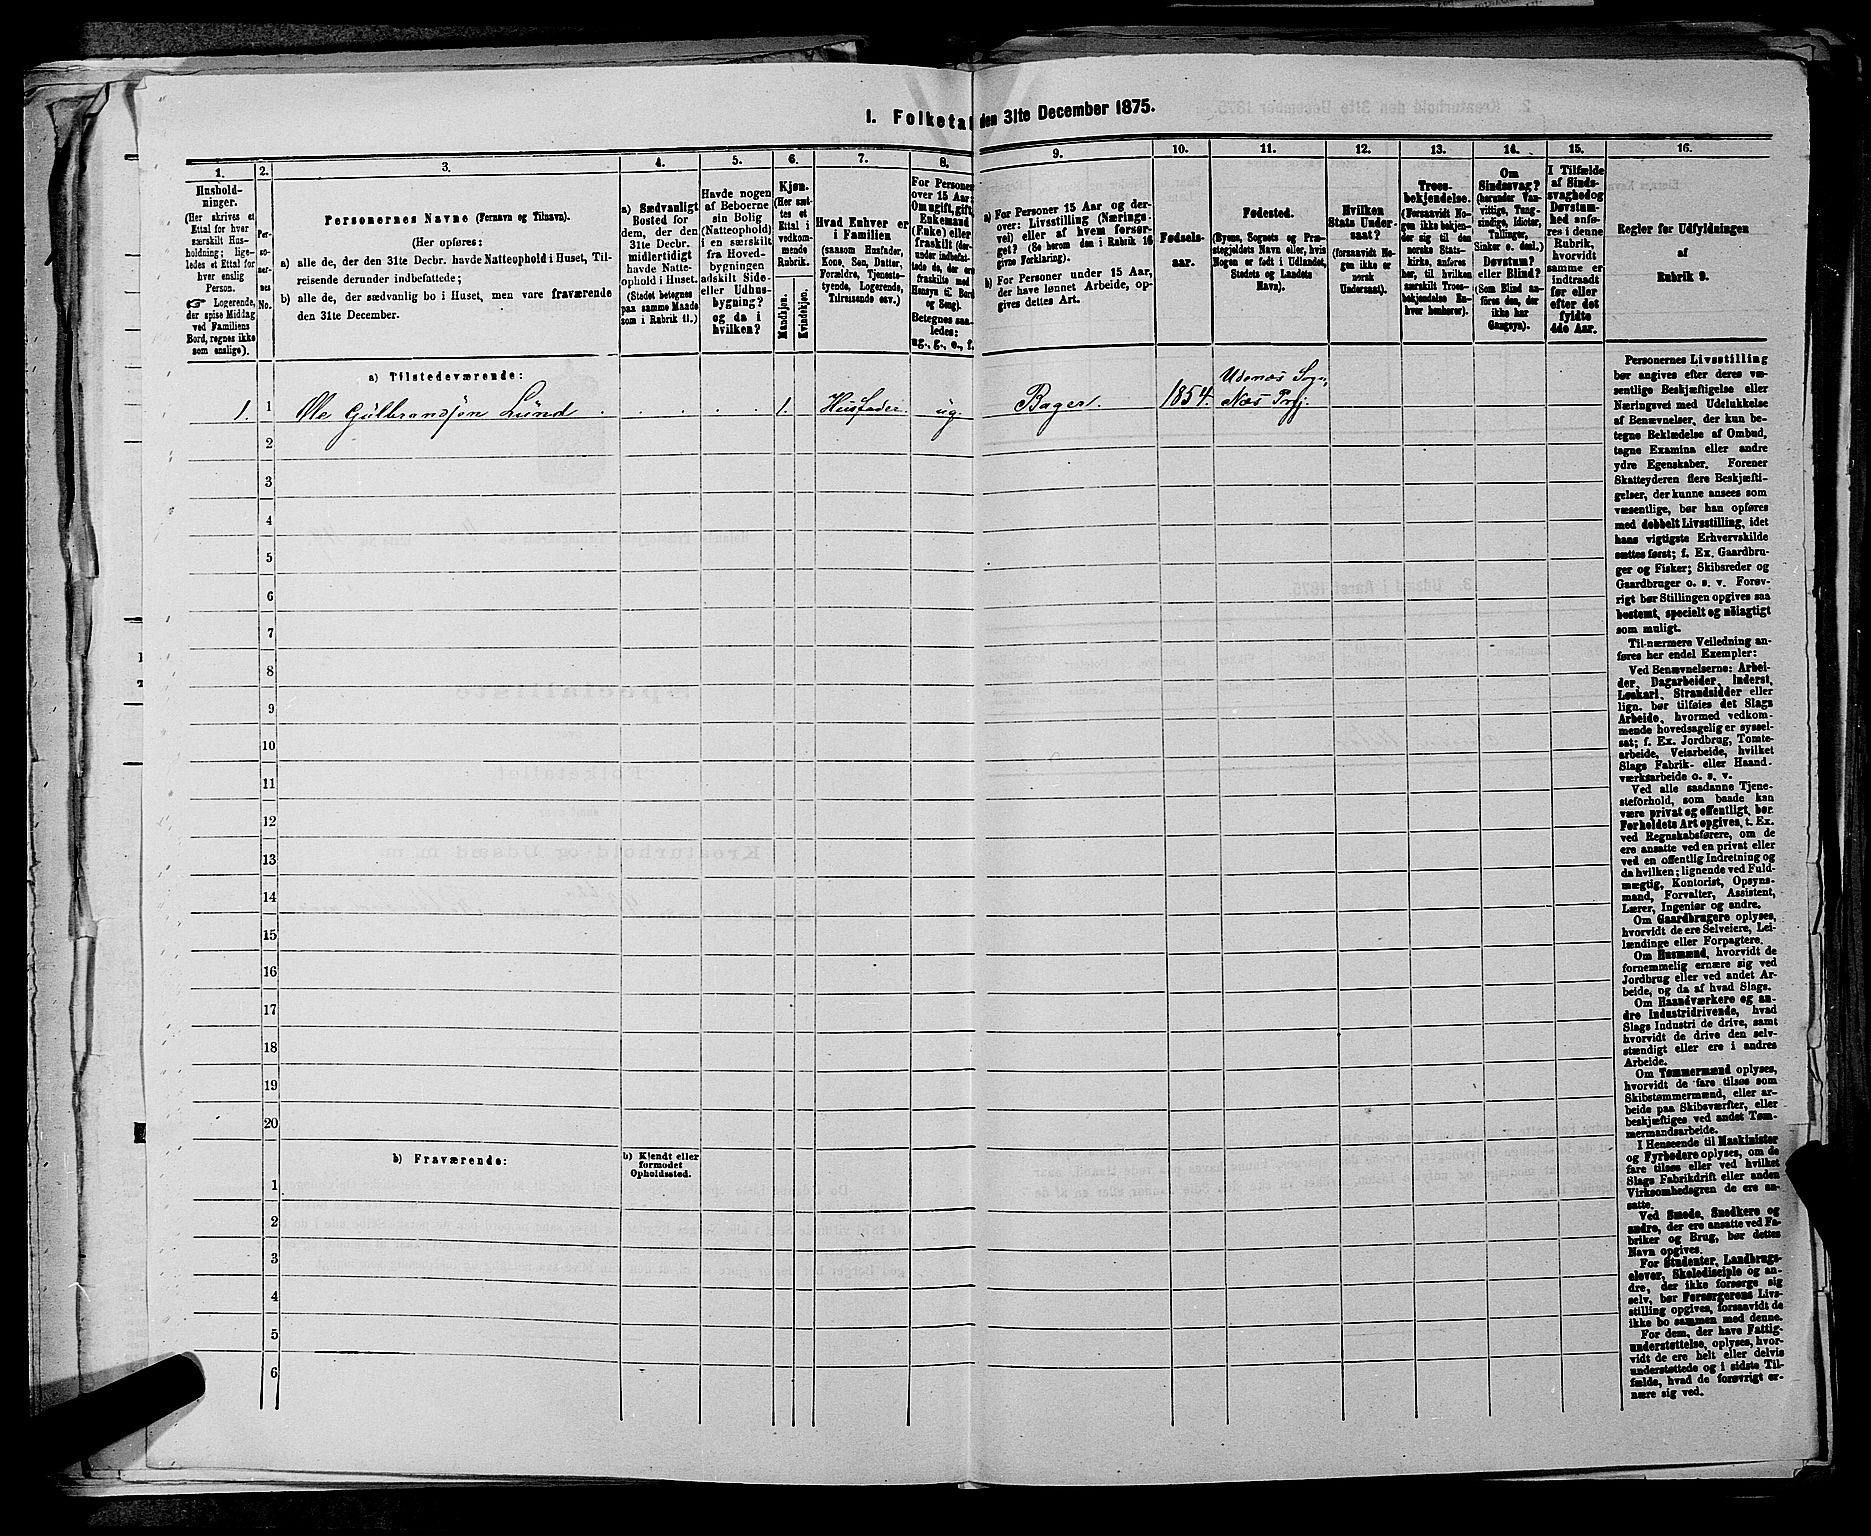 1. Folketal den 31te December 1875.
1.
Hushold-
ninger.
(Her skrives et
Ettal for hver
særskilt Hus-
holdning; lige-
ledes et Ettal for
hver enslig
Person.
☞ Logerende,
der spise Middag
ved Familiens
Bord, regnes ikke
som enslige).
2.
Per-
so-
ner-
nes
No.
3.
Personernes Navne (Fornavn og Tilnavn).
(Her opføres:
a) alle de, der den 31te Decbr. havde Natteophold i Huset, Til-
reisende derunder indbefattede;
b) alle de, der sædvanlig bo i Huset, men vare fraværende
den 31te December.
4.
a) Sædvanligt
Bosted for
dem, der den
31te Decbr.
midlertidigt
havde Natte-
ophold i Huset.
(Stedet betegnes
paa samme Maade
som i Rubrik 11.)
5.
Havde nogen
af Beboerne
sin Bolig
(Natteophold)
i en særskilt
fra Hoved-
bygningen
adskilt Side-
eller Udhus-
bygning?
og da i
hvilken?
6.
Kjøn.
(Her sæt-
tes et
Ettal i
vedkom-
mende
Rubrik.
Mandkjøn.
Kvindekjøn.
7.
Hvad Enhver er
i Familien
(saasom Husfader,
Kone, Søn, Datter,
Forældre, Tjeneste-
tyende, Logerende,
Tilreisende osv.)
8.
For Personer
over 15 Aar:
Om ugift, gift,
Enkemand
(Enke) eller
fraskilt (der-
under indbefat-
tede de, der ere
fraskilte med
Hensyn til Bord
og Seng).
Betegnes saa-
ledes:
ug., g., e., f.
9.
a) For Personer 15 Aar og der-
over: Livsstilling (Nærings-
vei) eller af hvem forsør-
get? (Se herom den i Rubrik 16
givne Forklaring).
b) For Personer under 15 Aar,
der have lønnet Arbeide, op-
gives dettes Art.
10.
Fødsels-
aar.
11.
Fødested.
(Byens, Sognets og Præ-
stegjeldets Navn eller, hvis
Nogen er født i Udlandet,
Stedets og Landets
Navn).
12.
Hvilken
Stats Under-
saat?
(forsaavidt No-
gen ikke er
norsk
Undersaat).
13.
Troes-
bekjendelse.
(Forsaavidt No-
gen ikke bekjen-
der sig til den
norske Stats-
kirke, anføres
her, til hvilken
særskilt Troes-
bekjendelse En-
hver henhører).
14.
Om
Sindssvag?
(herunder Van-
vittige, Tung-
sindige, Idioter,
Tullinger,
Sinker o. desl.)
Døvstum?
eller Blind?
(Som Blind an-
føres den, der
ikke har
Gangsyn).
15.
I Tilfælde
af Sinds-
svaghed og
Døvstum-
hed anfø-
res i denne
Rubrik,
hvorvidt
samme er
indtraadt
før eller
efter det
fyldte
4de Aar.
16.
Regler for Udfyldningen
af
Rubrik 9.
a) Tilstedeværende:
1. 1 Ole Gulbrandsen Lund 1. Husfader ug. Bager. 1854. Udenæs Sogn,
Næs Prgj.
2
3
4
5
6
7
8
9
10
11
12
13
14
15
16
17
18
19
20
b) Fraværende:
b) Kjendt eller
formodet
Opholdssted.
1
2
3
4
5
6
Personernes Livsstilling
bør angives efter deres væ-
sentlige Beskjæftigelse eller
Næringsvei med Udelukkelse
af Benævnelser, der kun be-
tegne Beklædelse af Ombud,
tagne Examina eller andre
ydre Egenskaber. Forener
Skatteyderen flere Beskjæfti-
gelser, der kunne ansees som
væsentlige, bør han opføres
med dobbelt Livsstilling, idet
hans vigtigste Erhvervskilde
sættes først; f. Ex. Gaardbru-
ger og Fisker; Skibsreder og
Gaardbruger o. s. v. Forøv-
rigt bør Stillingen opgives saa
bestemt, specielt og nøiagtigt
som muligt.
Til nærmere Veiledning an-
føres her endel Exempler:
Ved Benævnelserne: Arbei-
der, Dagarbeider, Inderst,
Løskarl, Strandsidder eller
lign. bør tilføies det Slags
Arbeide, hvormed vedkom-
mende hovedsagelig er syssel-
sat; f. Ex. Jordbrug, Tomte-
arbeide, Veiarbeide, hvilket
Slags Fabrik- eller Haand-
værksarbeide o. s. v.
Ved alle saadanne Tjene-
steforhold, som baade kan
være privat og offentligt, bør
Forholdets Art opgives, t. Ex.
ved Regnskabsførere, om de
ere ansatte ved en privat eller
ved en offentlig Indretning og
da hvilken; lignende ved Fuld-
mægtig, Kontorist, Opsyns-
mand, Forvalter, Assistent,
Lærer, Ingeniør og andre.
Om Gaardbrugere oplyses,
hvorvidt de ere Selveiere, Lei-
lændinge eller Forpagtere.
Om Husmænd, hvorvidt de
fornemmelig ernære sig ved
Jordbrug eller ved andet Ar-
beide, og da af hvad Slags.
Om Haandværkere og an-
dre Industridrivende, hvad
Slags Industri de drive, samt
hvorvidt de drive den selv-
stændigt eller ere i andres
Arbeide.
Om Tømmermænd oplyses,
hvorvidt de fare tilsøs som
Skibstømmermænd, eller ar-
beide paa Skibsværfter, eller
beskjæftiges ved andet Tøm-
mermandsarbeide.
I Henseende til Maskinister
og Fyrbødere oplyses, om de
fare tilsøs eller ved hvilket
Slags Fabrikdrift eller anden
Virksomhedsgren de ere an-
satte.
Ved Smede, Snedkere og
andre, der ere ansatte ved Fa-
briker og Brug, bør dettes
Navn opgives.
For Studenter, Landbrugs-
elever, Skoledisciple og an-
dre, der ikke forsørge sig
selv, bør Forsørgerens Livs-
stilling opgives, forsaavidt de
ikke bo sammen med denne.
For dem, der have Fattig-
understøttelse, oplyses, hvor-
vidt de ere helt eller delvis
understøttede og i sidste Til-
fælde, hvad de forøvrigt er-
nære sig ved.